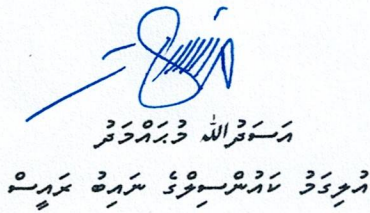 އަސަދުﷲ މުޙައްމަދު
އުލިގަމު ކައުންސިލްގެ ނައިބު ރައީސް